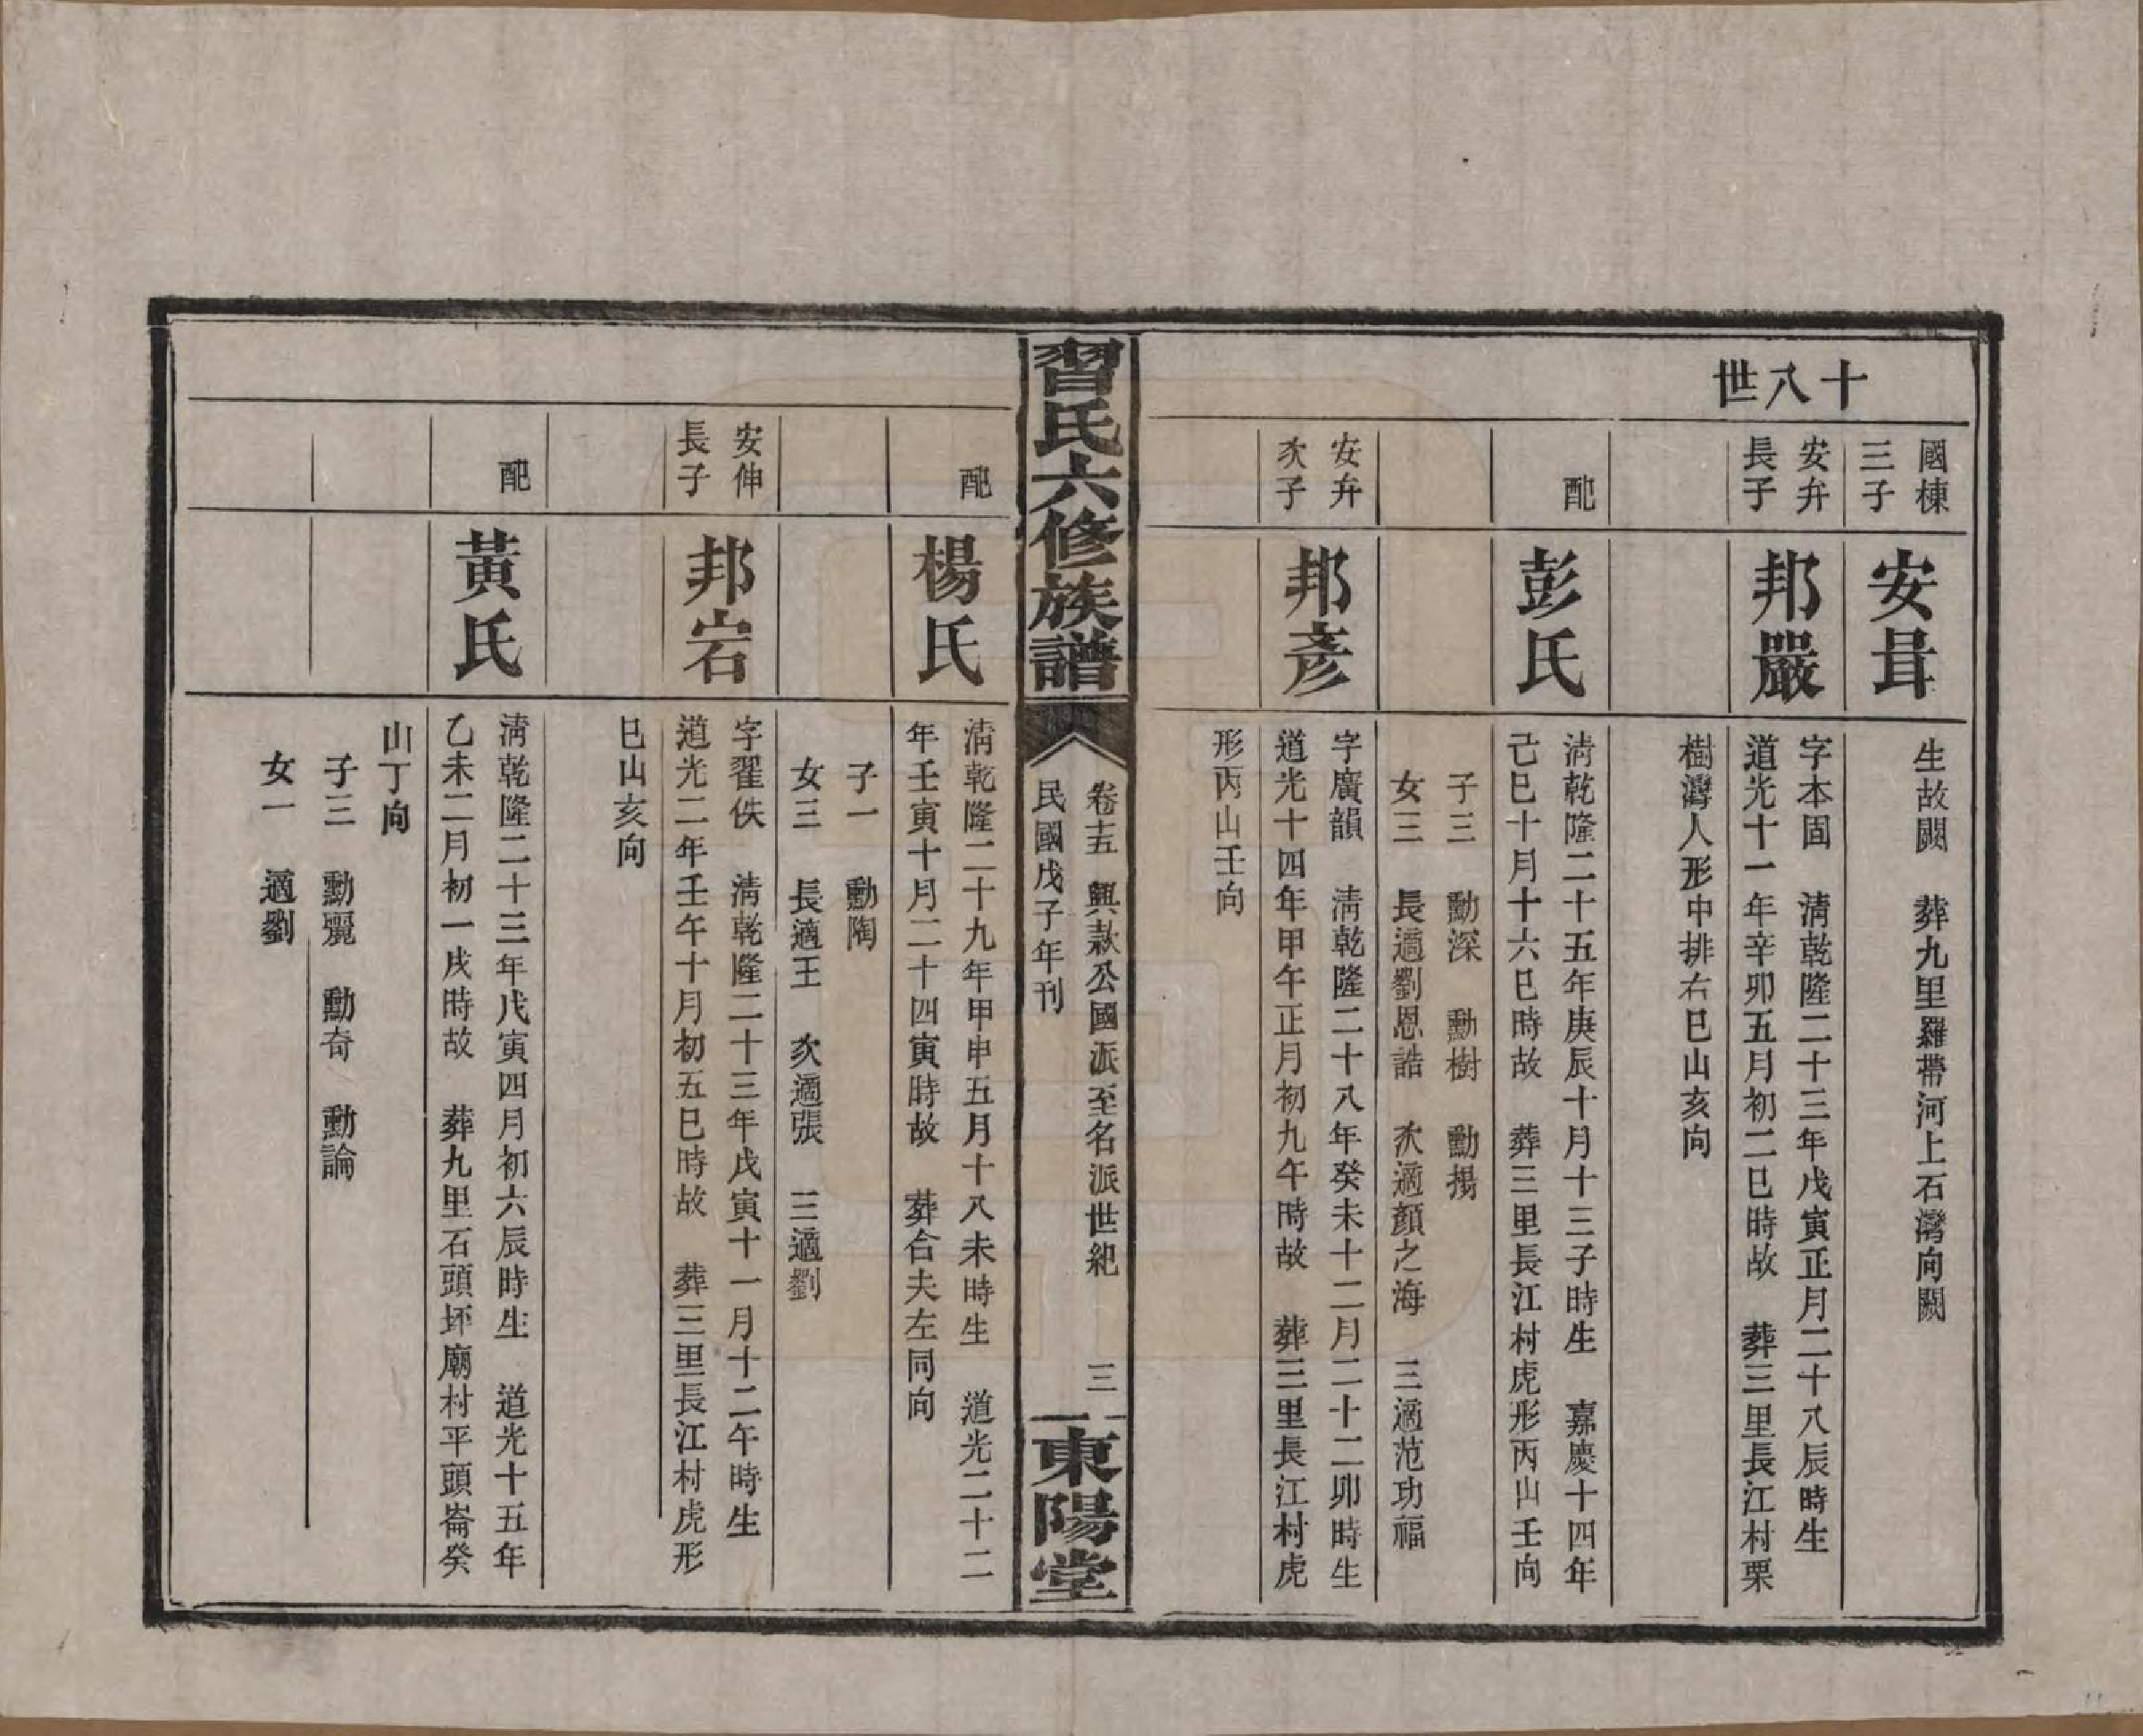 十八世
國棟
三子
安咠
生故闕　葬九里羅帶河上石灣向闕
安弁
長子
邦嚴
字本固　淸乾隆二十三年戊寅正月二十八辰時生
道光十一年辛卯五月初二巳時故　葬三里長江村栗
樹灣人形中排右巳山亥向
配
彭氏
淸乾隆二十五年庚辰十月十三子時生　嘉慶十四年
己巳十月十六巳時故　葬三里長江村虎形丙山壬向
子三　勳深　勳樹　勳揚
女三　長適劉恩誥　次適顏之海　三適范功福
安弁
次子
邦彥
字廣韻　淸乾隆二十八年癸未十二月二十二卯時生
道光十四年甲午正月初九午時故　葬三里長江村虎
形丙山壬向
習氏六修族譜
卷十五　興款公國派至名派世紀　三
民國戊子年刊
東陽堂
配
楊氏
淸乾隆二十九年甲申五月十八未時生　道光二十二
年壬寅十月二十四寅時故　葬合夫左同向
子一　勳陶
女三　長適王　次適張　三適劉
安伸
長子
邦宕
字翟佚　淸乾隆二十三年戊寅十一月十二午時生
道光二年壬午十月初五巳時故　葬三里長江村虎形
巳山亥向
配
黃氏
淸乾隆二十三年戊寅四月初六辰時生　道光十五年
乙未二月初一戌時故　葬九里石頭坏廟村平頭崙癸
山丁向
子三　勳驪　勳奇　勳論
女一　適劉